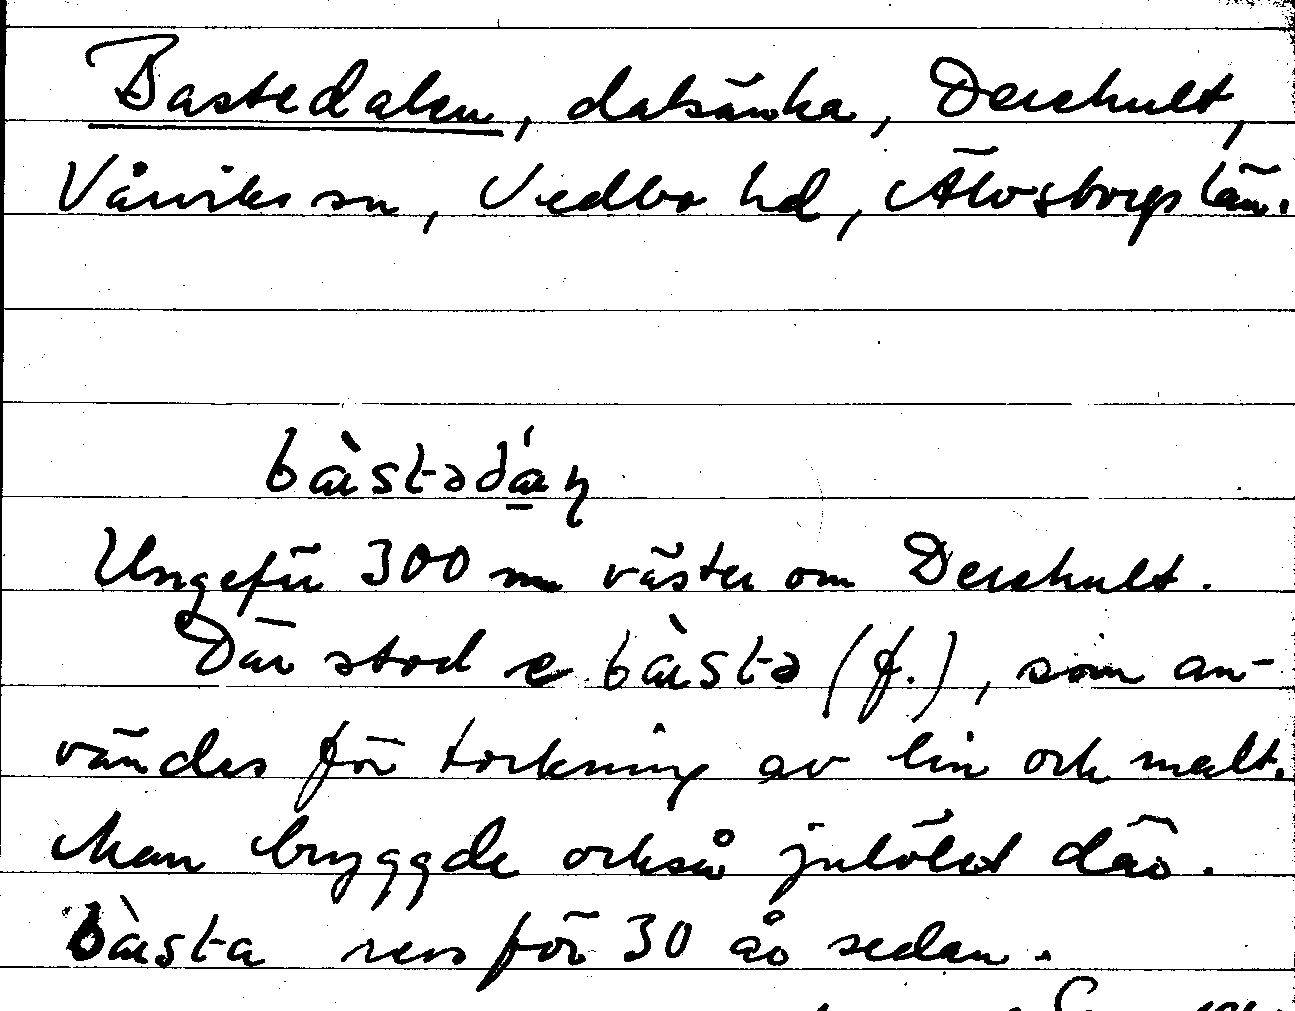 Bastedalen, dalsänka, Derehult,
Vårviks sn, Vedbo hd, Älvsborgs län.
bàstədá̱ɳ
Ungefär 300 m väster om Derehult.
Där stod e bàsta (f.), som an-
vändes för torkning av lin och malt.
Man bryggde också julölet där.
bàsta revs för 30 år sedan.